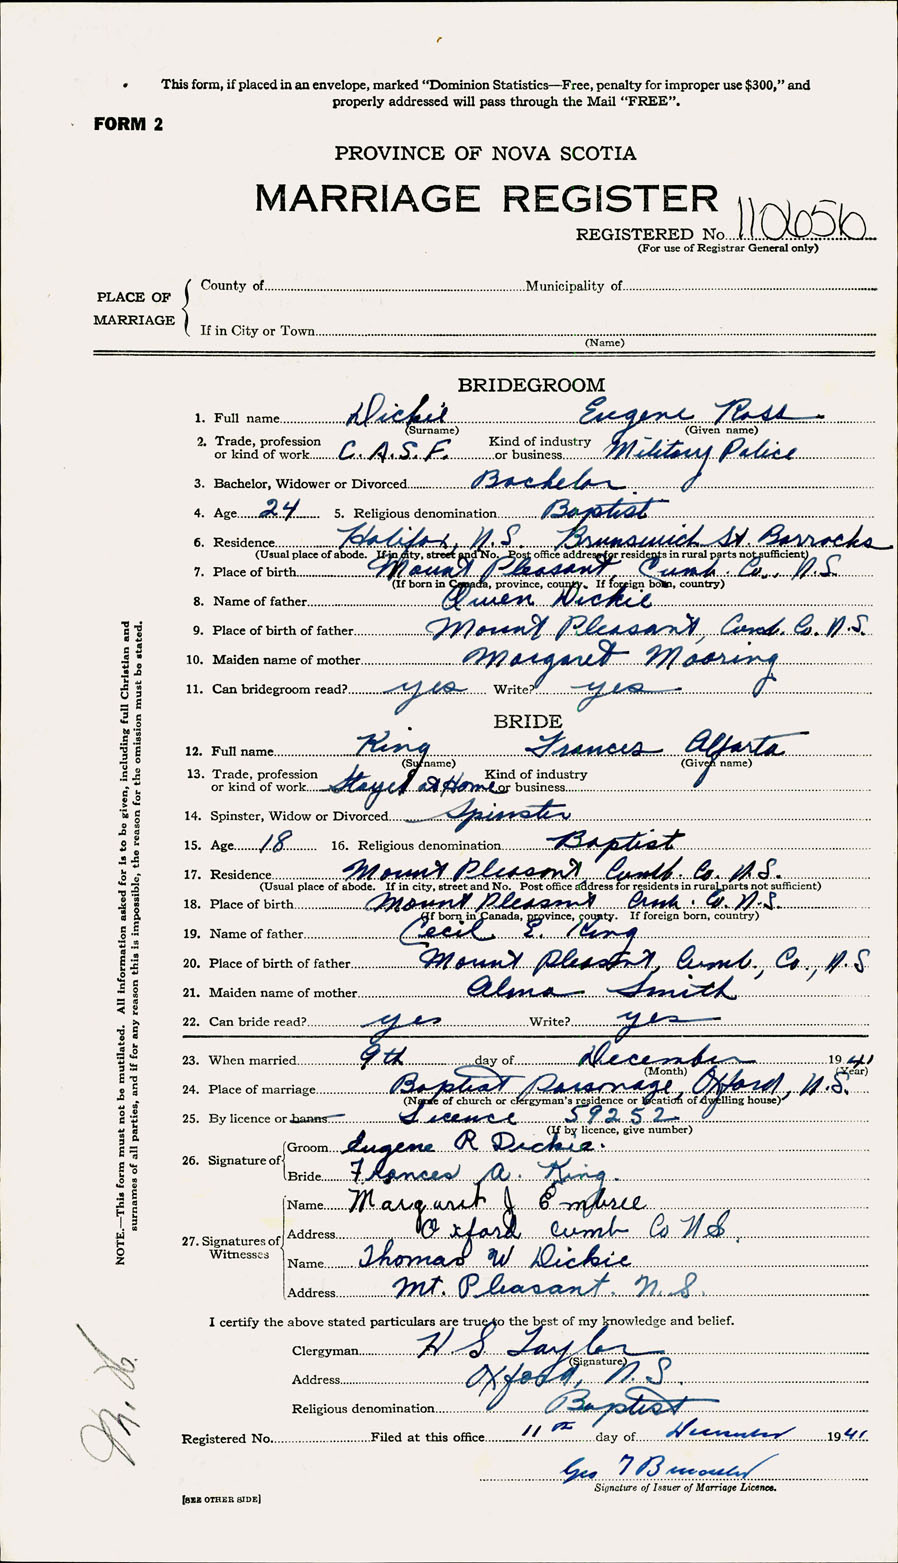 This form, if placed in an envelope, marked “Dominion Statistics—Free, penalty for improper use $300,” and
properly addressed will pass through the Mail “FREE”.
FORM 2
PROVINCE OF NOVA SCOTIA
MARRIAGE REGISTER
REGISTERED No. 110656
(For use of Registrar General only)
PLACE OF MARRIAGE
County of Municipality of
If in City or Town
(Name)
BRIDEGROOM
1. Full name Dickie Eugene Ross
(Surname) (Given name)
2. Trade, profession or kind of work C. A. S. F. Kind of industry or business Military Police
3. Bachelor, Widower or Divorced Bachelor
4. Age 24 5. Religious denomination Baptist
6. Residence Halifax, N.S. Brunswick St. Barracks
(Usual place of abode. If in city, street and No. Post office address for residents in rural parts not sufficient)
7. Place of birth Mount Pleasant, Cumb. Co., N.S.
(If born in Canada, province, county. If foreign born, country)
8. Name of father Owen Dickie
9. Place of birth of father Mount Pleasant, Cumb. Co. N.S.
10. Maiden name of mother Margaret Mooring
11. Can bridegroom read? yes Write? yes
BRIDE
12. Full name King Frances Alfarta
(Surname) (Given name)
13. Trade, profession or kind of work Stayed at Home Kind of industry or business
14. Spinster, Widow or Divorced Spinster
15. Age 18 16. Religious denomination Baptist
17. Residence Mount Pleasant, Cumb. Co. N.S.
(Usual place of abode. If in city, street and No. Post office address for residents in rural parts not sufficient)
18. Place of birth Mount Pleasant Cumb. Co. N.S.
(If born in Canada, province, county. If foreign born, country)
19. Name of father Cecil E. King
20. Place of birth of father Mount Pleasant, Cumb., Co., N.S
21. Maiden name of mother Alma Smith
22. Can bride read? yes Write? yes
23. When married 9th day of December 1941
(Month) (Year)
24. Place of marriage Baptist Parsonage, Oxford, N.S.
(Name of church or clergyman's residence or location of dwelling house)
25. By licence or banns Licence 59252
(If by licence, give number)
26. Signature of
Groom Eugene R Dickie.
Bride Frances A. King.
27. Signatures of Witnesses
Name Margaret J Embree
Address Oxford Cumb Co N S.
Name Thomas W Dickie
Address Mt. Pleasant. N.S.
I certify the above stated particulars are true to the best of my knowledge and belief.
Clergyman H S Taylor
(Signature)
Address Oxford, N.S.
Religious denomination Baptist
Registered No. Filed at this office 11th day of December 1941
Geo T
Signature of Issuer of Marriage Licence.
[SEE OTHER SIDE]
NOTE.—This form must not be mutilated. All information asked for is to be given, including full Christian and
surnames of all parties, and if for any reason this is impossible, the reason for the omission must be stated.